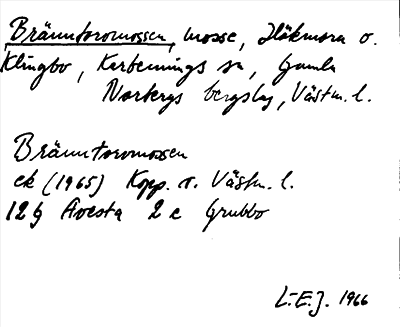 Bränntoromossen, mosse, Håkmora o.
Klingbo, Karbennings sn, Gamla
Norbergs bergslag, Västm. l.
Bränntoromossen
ek (1965) Kopp. o. Västm. l.
12 G Avesta 2 c Grubbo
L.-E.J. 1966